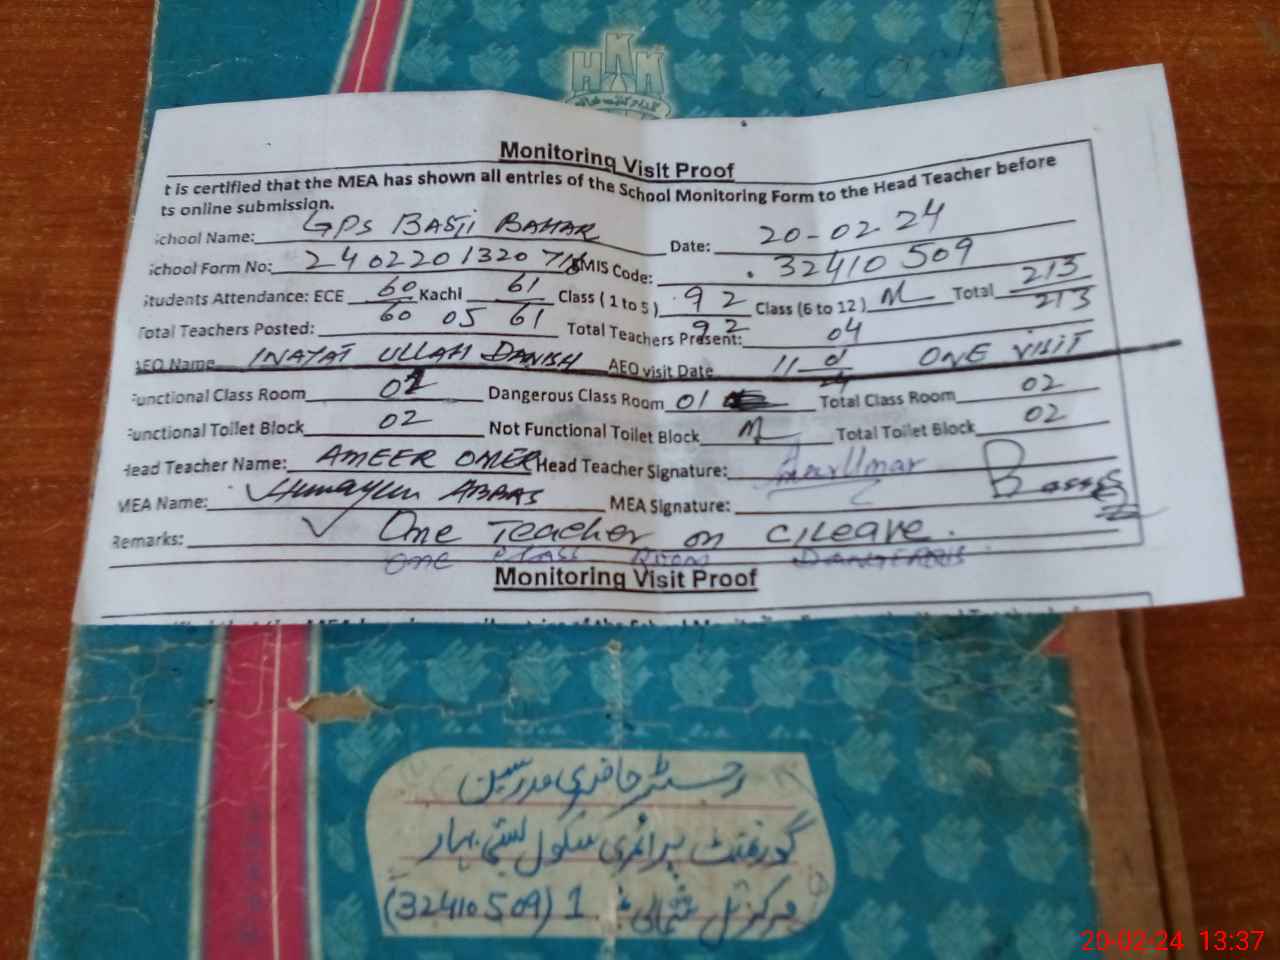 HKK
Monitoring Visit Proof
t is certified that the MEA has shown all entries of the School Monitoring Form to the Head Teacher before
ts online submission.
School Name: GPS BASTI BAHAR Date: 20-02-24
School Form No: 2402201320 EMIS Code: 32410509
Students Attendance: ECE 60 Kachi 61 Class ( 1 to 5 ) 92 Class (6 to 12) Total 213
60 61 92 213
Total Teachers Posted: 05 Total Teachers Present: 04
AEO Name INAYAT ULLAH DANISH AEO visit Date 11 ONE VISIT
Functional Class Room 02 Dangerous Class Room 01 Total Class Room 02
Functional Toilet Block 02 Not Functional Toilet Block Total Toilet Block 02
Head Teacher Name: AMEER OMER Head Teacher Signature:
MEA Name: Humayun ABBAS MEA Signature:
Remarks: One Teacher on C/Leave.
one CLASS ROOM DANGEROUS
Monitoring Visit Proof
رجسٹر حاضری مدرسین
گورنمنٹ پرائمری سکول بستی بہار
مرکز ٹل شمالی 1 (32410509)
20-02-24 13:37